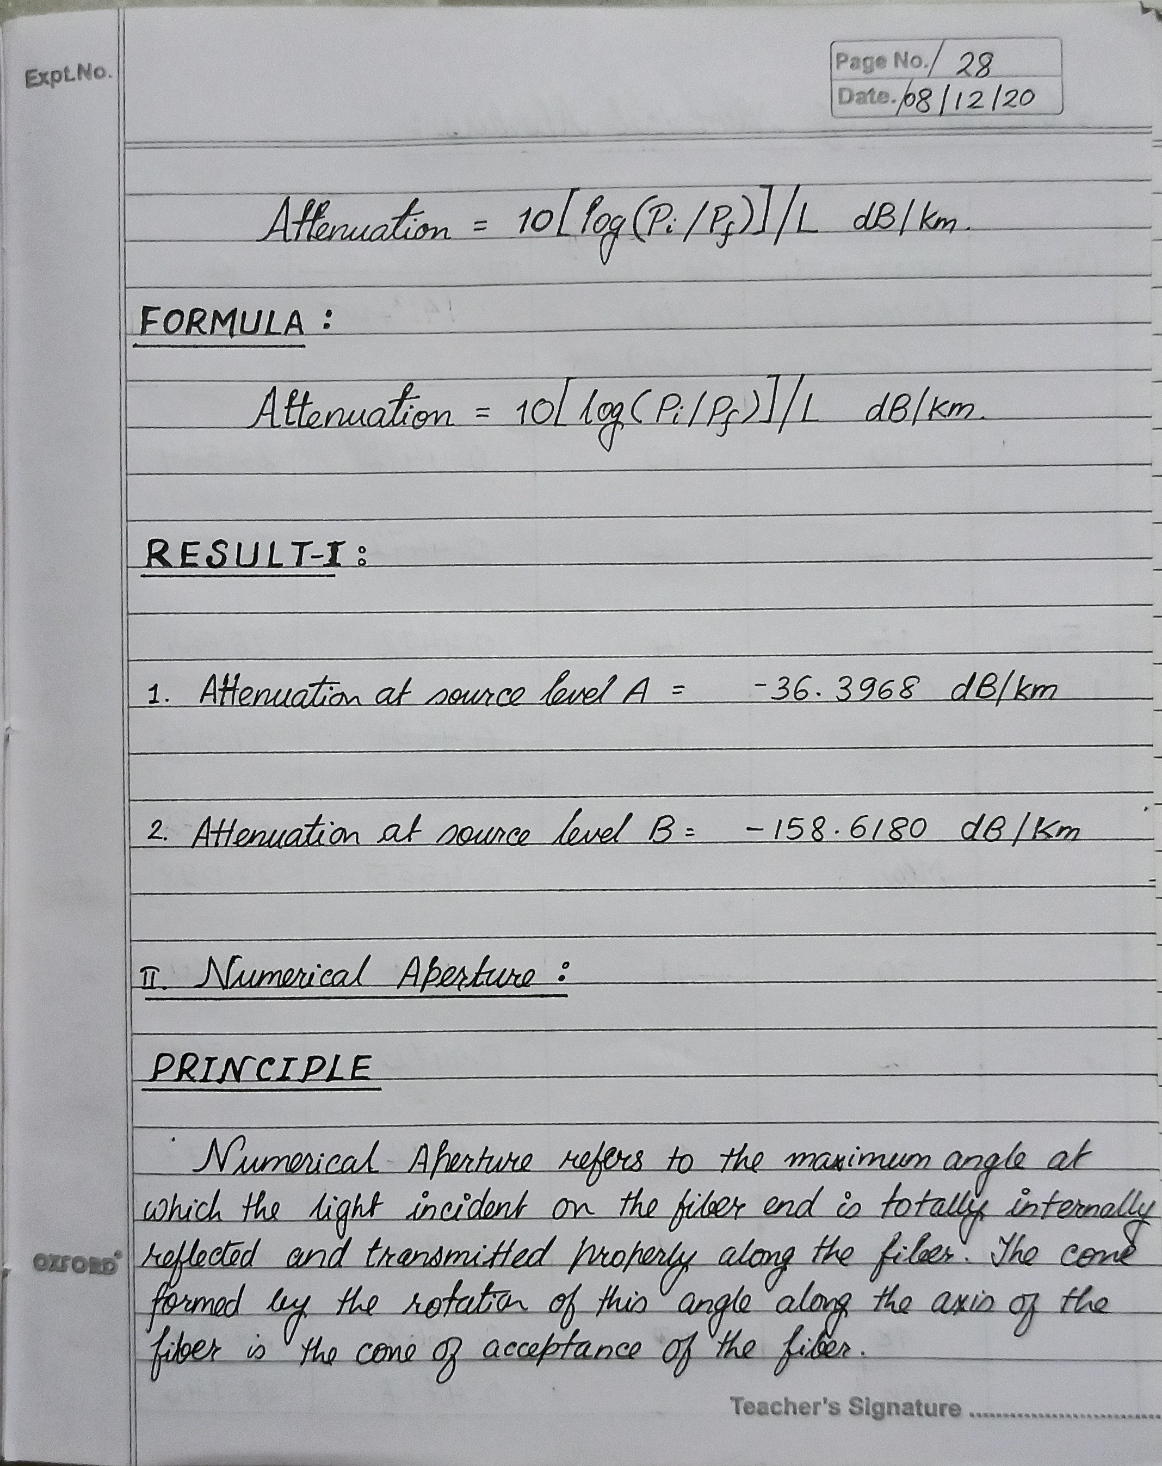 Expt.No.
Page No. 28
Date. 08/12/20
Attenuation = 10[log(Pi/Pf)]/L dB/km.
FORMULA :
Attenuation = 10[log(Pi/Pf)]/L dB/km.
RESULT-I :
1. Attenuation at source level A = -36.3968 dB/km
2. Attenuation at source level B = -158.6180 dB/Km
II. Numerical Aperture :
PRINCIPLE
Numerical Aperture refers to the maximum angle at
which the light incident on the fiber end is totally internally
reflected and transmitted properly along the fiber. The cone
formed by the rotation of this angle along the axis of the
fiber is the cone of acceptance of the fiber.
OXFORD®
Teacher's Signature ..............................